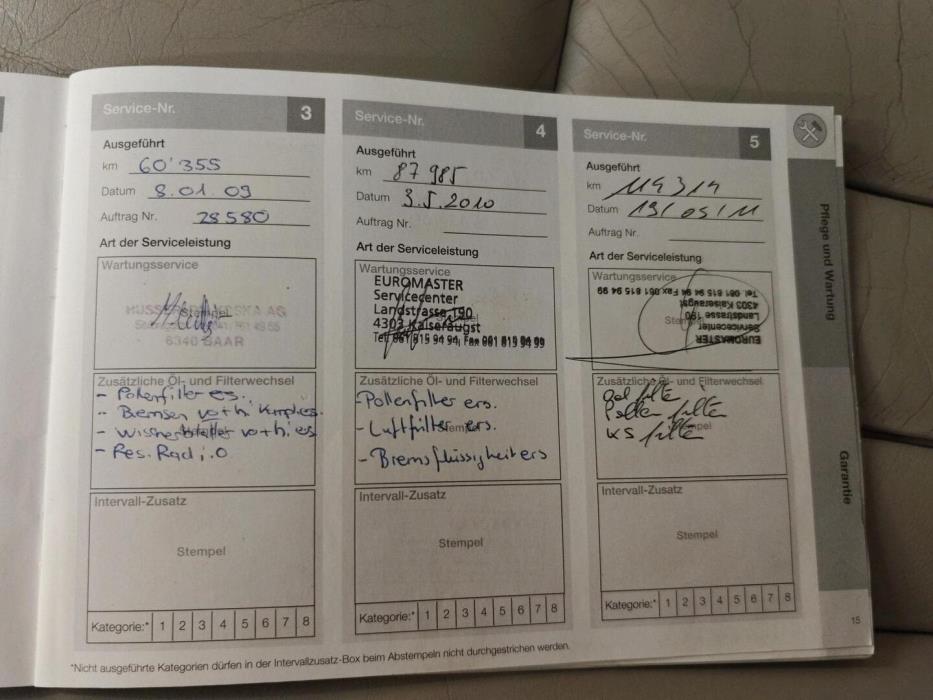 Service-Nr. 3
Ausgeführt
km 60'355
Datum 8.01.09
Auftrag Nr. 28580
Art der Serviceleistung
Wartungsservice
6340 BAAR
Zusätzliche Öl- und Filterwechsel
- Pollenfilter es.
- Bremsen vo+hi
vo+hi es
- Res. Rad i.O
Intervall-Zusatz
Stempel
Kategorie:* 1 2 3 4 5 6 7 8
Service-Nr. 4
Ausgeführt
km 87 985
Datum 3.5.2010
Auftrag Nr.
Art der Serviceleistung
Wartungsservice
EUROMASTER
Servicecenter
Landstrasse 190
4303 Kaiseraugst
Tel. 061 815 94 94, Fax 061 815 94 99
Zusätzliche Öl- und Filterwechsel
- Pollenfilter ers.
- Luftfilter ers.
- Bremsflüssigkeit ers
Intervall-Zusatz
Stempel
Kategorie:* 1 2 3 4 5 6 7 8
Service-Nr. 5
Ausgeführt
km 114 314
Datum 13/05/11
Auftrag Nr.
Art der Serviceleistung
Wartungsservice
EUROMASTER
Servicecenter
Landstrasse 190
4303 Kaiseraugst
Tel. 061 815 94 94 Fax 061 815 94 99
Zusätzliche Öl- und Filterwechsel
filte
filte
KS filte
Intervall-Zusatz
Stempel
Kategorie:* 1 2 3 4 5 6 7 8
*Nicht ausgeführte Kategorien dürfen in der Intervallzusatz-Box beim Abstempeln nicht durchgestrichen werden.
Pflege und Wartung
Garantie
15